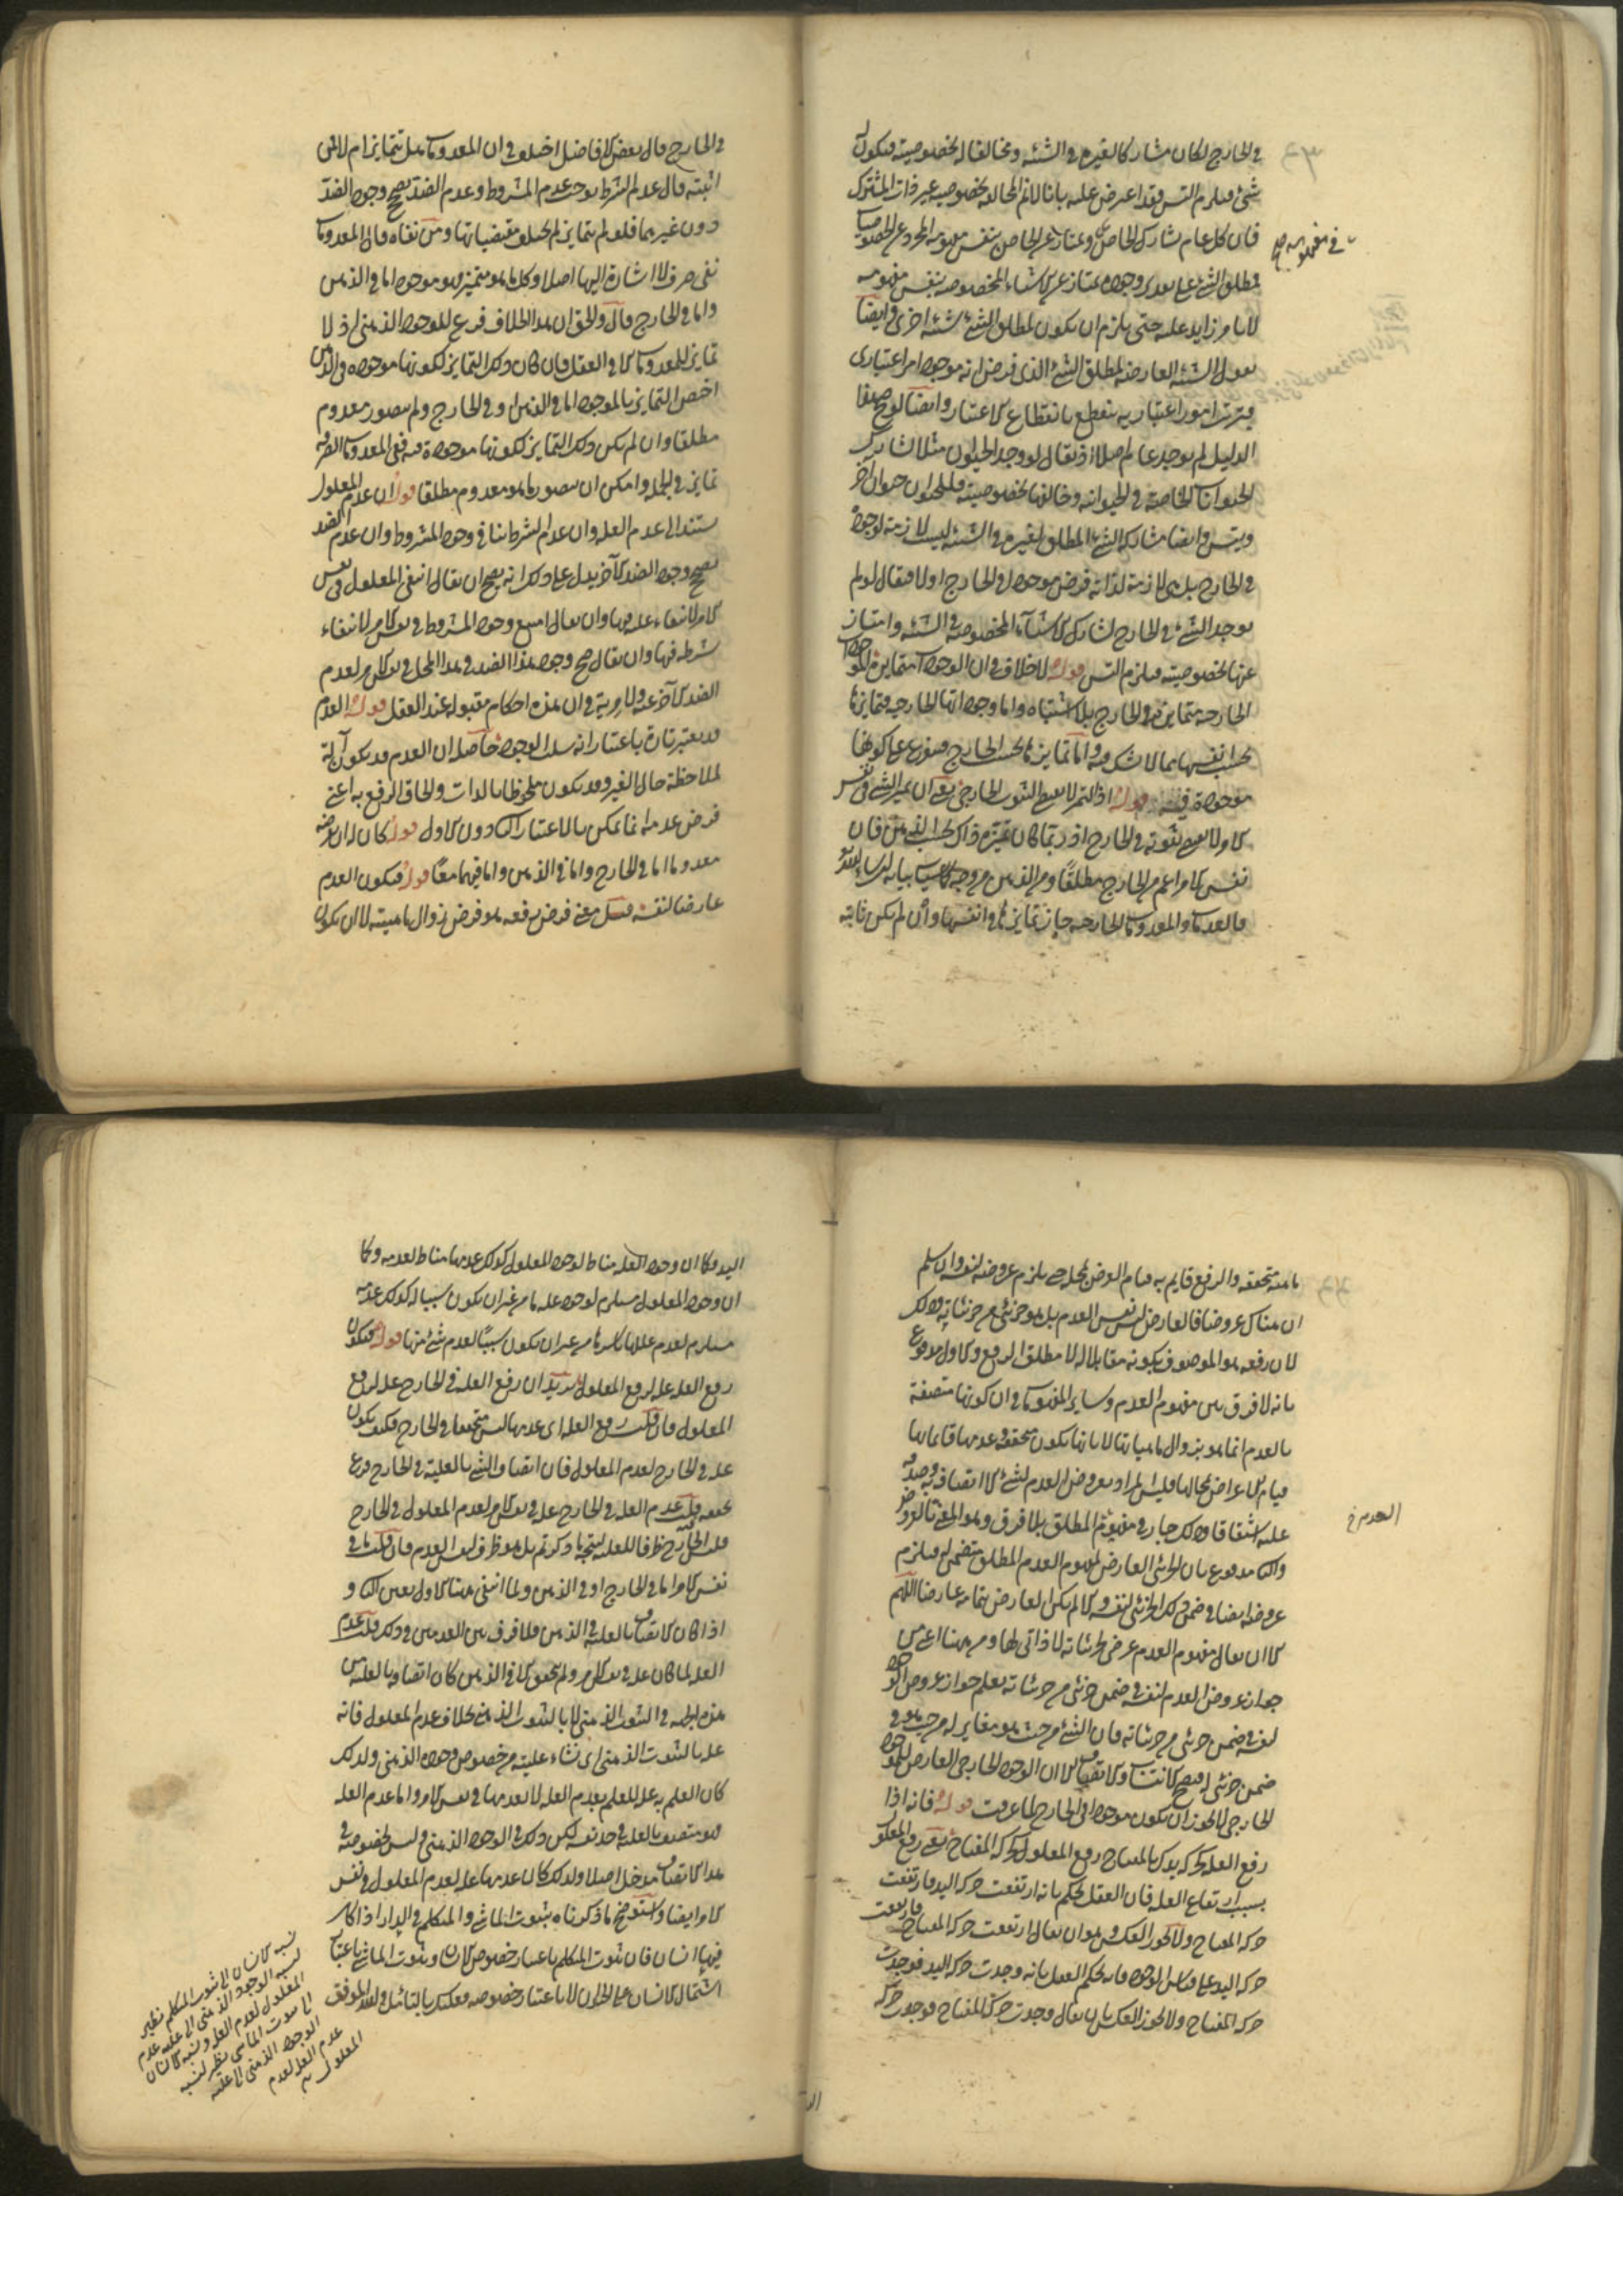 في الخارج لكان مشاركا لغيره في الشيئية ومخالفا له بخصوصية فيكون له
شئ فيلزم التس وقد اعترض عليه بانا لانم المخالفة بخصوصية غير ذات المشترك
فان كل عام يشارك الخاص وعتاز عن الخاص بنفس مفهومه المجرد عن الخصوصيات
فمطلق الشئ على تقدير وجوده ممتاز عن الاشياء المخصوصة بنفس مفهومه
لا بامر زايد عليه حتى يلزم ان يكون لمطلق الشئ شيئية اخرى وايضا
نقول الشيئية العارضة لمطلق الشئ الذي فرض انه موجود امر اعتباري
فيترتب امور اعتبارية ينقطع بانقطاع الاعتبار وايضا لو صح هذا
الدليل لم يوجد عام اصلا اذ يقال لو وجد الحيوان مثلا لشارك
الحيوانات الخاصة في الحيوانية وخالفها بخصوصية فللحيوان حيوان آخر
ويتس وايضا مشاركة الشئ المطلق لغيره في الشيئية ليست لازمة لوجوده
في الخارج بل هي لازمة لذاته فرض موجودا في الخارج اولا فيقال لو لم
يوجد الشئ في الخارج لشارك الاشياء المخصوصة في الشيئية وامتاز
عنها بخصوصية فيلزم التس قوله لا خلاف في ان الوجودات متمايزة الموجودات
الخارجية متمايزة في الخارج بلا اشتباه واما وجوداتها الخارجية فتمايزها
بحسب انفسها مما لا شك فيه واما تمايزها بحسب الخارج فيتفرع على كونها
موجودة فيه قوله اذ التميز لا يعطي الثبوت الخارجي يعني ان تميز الشئ في نفس
الامر لا يعطي ثبوته في الخارج اذ ربما كان تميزه ذاك بحسب الذهن فان
نفس الامر اعم من الخارج مطلقا ومن الذهن من وجه كما سياتي بيانه ان شاء الله
فالعدمات والمعدومات الخارجية جاز تمايزها في انفسها وان لم يكن ثابتة
في الخارج قال بعض الافاضل اختلف في ان المعدومات هل تتمايز ام لا فمن
اثبته قال عدم الشرط يوجب عدم المشروط وعدم الضد يصحح وجود الضد
دون غيرهما فلو لم تتمايز لم يختلف مقتضياتها ومن نفاه قال المعدومات
نفى صرف لا اشارة اليها اصلا وكل ما هو متميز فهو موجود اما في الذهن
واما في الخارج قال والحق ان هذا الخلاف فرع للوجود الذهني اذ لا
تمايز للمعدومات الا في العقل فان كان ذلك التمايز لكونها موجودة في الذهن
اختص التمايز بالموجود اما في الذهن او في الخارج ولم يتصور معدوم
مطلقا وان لم يكن ذلك التمايز لكونها موجودة فيه ففي المعدومات الصرفة
تمايز في الجملة وامكن ان يتصور ما هو معدوم مطلقا قوله ان عدم المعلول
يستند الى عدم العلة وان عدم الشرط ينافي وجود المشروط وان عدم الضد
يصحح وجود الضد الآخر يدل على ذلك انه يصح ان يقال انتفى المعلول في نفس
الامر لانتفاء علته فيها وان يقال امتنع وجود المشروط في نفس الامر لانتفاء
شرطه فيها وان يقال صح وجود هذا الضد في هذا المحل في نفس الامر لعدم
الضد الآخر عنه ولا مرية في ان هذه احكام مقبولة عند العقل قوله العدم
قد يعتبر تارة باعتبار انه سلب الوجود حاصله ان العدم قد يكون آلة
لملاحظة حال الغير وقد يكون ملحوظا بالذات والحاق الرفع به اعني
فرض عدمه انما يمكن بالاعتبار الثاني دون الاول قوله كان له ان يفرضه
معدوما اما في الخارج واما في الذهن واما فيهما معا قوله فيكون العدم
عارضا لنفسه قيل معنى فرض رفعه هو فرض زوال ماهيته لا ان يكون
ماهيته متحققة والرفع قايم به قيام العرض بمحله حتى يلزم عروضه لنفسه وان سلم
ان هناك عروضا فالعارض ليس نفس العدم بل هو جزئي من جزئياته وذلك
لان رفعه هو الموصوف بكونه مقابلا له لا مطلق الرفع والاول مدفوع
بانه لا فرق بين مفهوم العدم وساير المفهومات في ان كونها متصفة
بالعدم انما هو بزوال ماهياتها لا بانها يكون متحققة وعدمها قائما بها
قيام الاعراض بمحالها وليس المراد بعروض العدم لشئ الا اتصافه به وصدقه
عليه اشتقاقا وذلك جار في مفهوم المطلق بلا فرق وهو المعنى بالعروض
والثاني مدفوع بان الجزئي العارض لمفهوم العدم المطلق متضمن له فيلزم
عروضه ايضا في ضمن ذلك الجزئي لنفسه والا لم يكن العارض بتمامه عارضا اللهم
الا ان يقال مفهوم العدم عرضي لجزئياته لا ذاتي لها ومن ههنا اعني من
جواز عروض العدم لنفسه في ضمن جزئي من جزئياته يعلم جواز عروض الوجود
لنفسه في ضمن جزئي من جزئياته فان الشئ من حيث هو مغاير له من حيث هو في
ضمن جزئي له فيصح الانتساب والاتصاف الا ان الوجود الخارجي العارض للوجود
الخارجي لا يجوز ان يكون موجودا في الخارج لما عرفت قوله فانه اذا
رفع العلة كحركة يدك بالمفتاح رفع المعلول كحركة المفتاح يعني رفع المعلول
بسبب ارتفاع العلة فان العقل يحكم بانه ارتفعت حركة اليد فارتفعت
حركة المفتاح ولا يجوز العكس وهو ان يقال ارتفعت حركة المفتاح فارتفعت
حركة اليد على قياس الوجود فانه يحكم العقل بانه وجدت حركة اليد فوجدت
حركة المفتاح ولا يجوز العكس بان يقال وجدت حركة المفتاح فوجدت حركة
العدم خ
اليد وكما ان وجود العلة مناط لوجود المعلول كذلك عدمها مناط لعدمه وكما
ان وجود المعلول مستلزم لوجود علة ما من غير ان يكون سببا له كذلك عدمه
مستلزم لعدم عللها باسرها من غير ان يكون سببا لعدم شئ منها قوله فيكون
رفع العلة علة لرفع المعلول يريد ان رفع العلة في الخارج علة لرفع
المعلول فان قلت رفع العلة اي عدمها ليس متحققا في الخارج فكيف يكون
علة في الخارج لعدم المعلول فان اتصاف الشئ بالعلية في الخارج فرع
تحققه فيه قلت عدم العلة في الخارج علة في نفس الامر لعدم المعلول في الخارج
فليس الخارج ظرفا للعلية ليتجه ما ذكرتم بل هو ظرف لنفس العدم فان قلت ما في
نفس الامر اما في الخارج او في الذهن ولما انتفى هنا الاول تعين الثاني و
اذا كان الاتصاف بالعلية في الذهن فلا فرق بين العدمين في ذلك قلت عدم
العلة لما كان علة في نفس الامر ولم يتحقق الا في الذهن كان اتصافه بالعلية من
هذه الجهة في الثبوت الذهني لا بالثبوت الذهني بخلاف عدم المعلول فانه
علة بالثبوت الذهني اي نشاء علية من خصوص وجوده الذهني ولذلك
كان العلم به علة للعلم بعدم العلة لا لعدمها في نفس الامر واما عدم العلة
فهو متصف بالعلية في حد نفسه لكن ذلك في الوجود الذهني وليس لخصوصية في
هذا الاتصاف مدخل اصلا ولذلك كان عدمها علة لعدم المعلول في نفس
الامر ايضا واستوضح ما ذكرناه بثبوت الماشي والمتكلم في الدار اذا كان
فيها انسان فان ثبوت المتكلم باعتبار خصوص الانسان وثبوت الماشي باعتبار
اشتمال الانسان على الحيوان لا باعتبار خصوصه فعليك بالتأمل والله الموفق
نسبة الانسان الى ثبوت المتكلم نظير
نسبة الوجود الذهني الى علية عدم
المعلول لعدم العلة ونسبة الانسان
الى ثبوت الماشي نظير لنسبة
الوجود الذهني الى علية
عدم العلة لعدم
المعلول